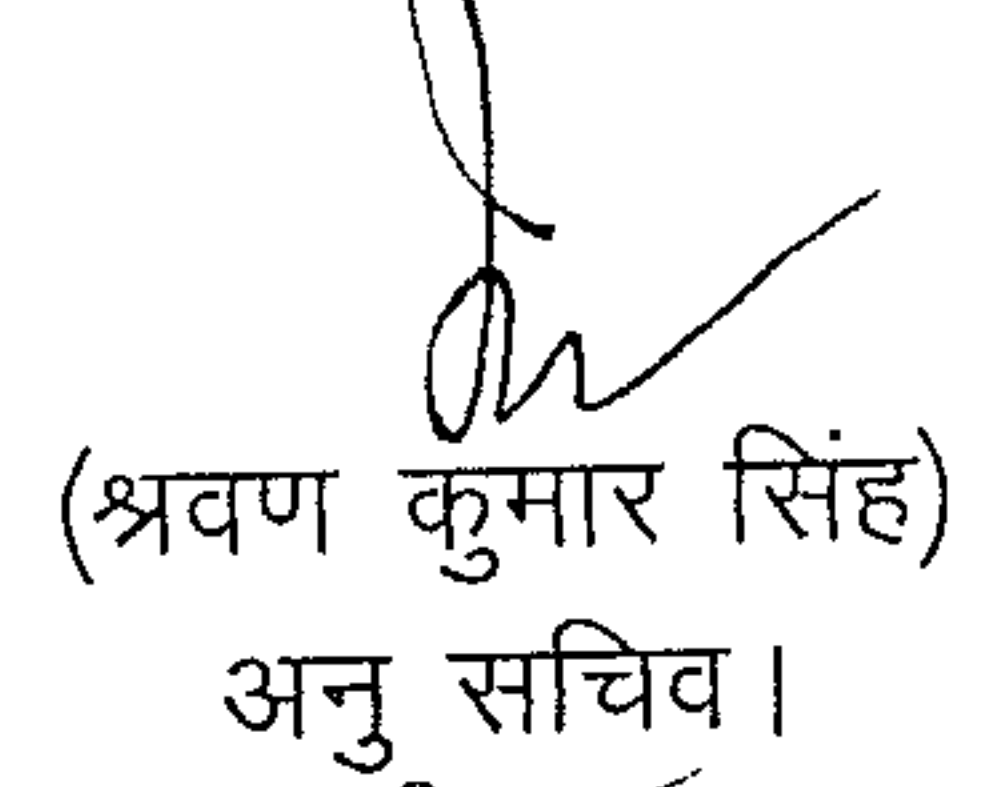 (श्रवण कुमार सिंह)
अनु सचिव।